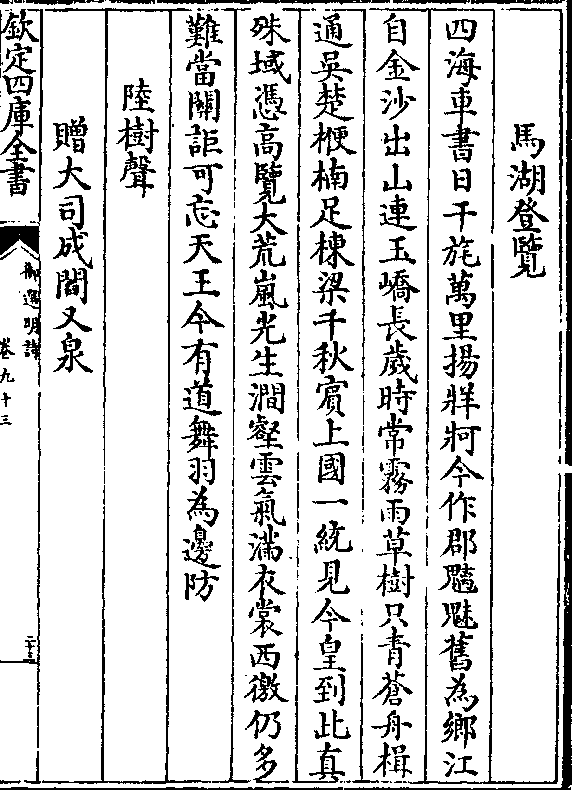 馬湖登覽
四海車書日干旄萬里揚牂牁今作郡魑魅舊為鄉江
自金沙出山連玉嶠長歲時常霧雨草樹只青蒼舟楫
通吳楚楩楠足棟梁千秋賓上國一統見今皇到此真
殊域憑高覽大荒嵐光生澗壑雲氣滿衣裳西徼仍多
難當關詎可忘天王今有道舞羽為邊防
陸樹聲
贈大司成閻又泉
欽定四庫全書
御選明詩
卷九十三
二十三